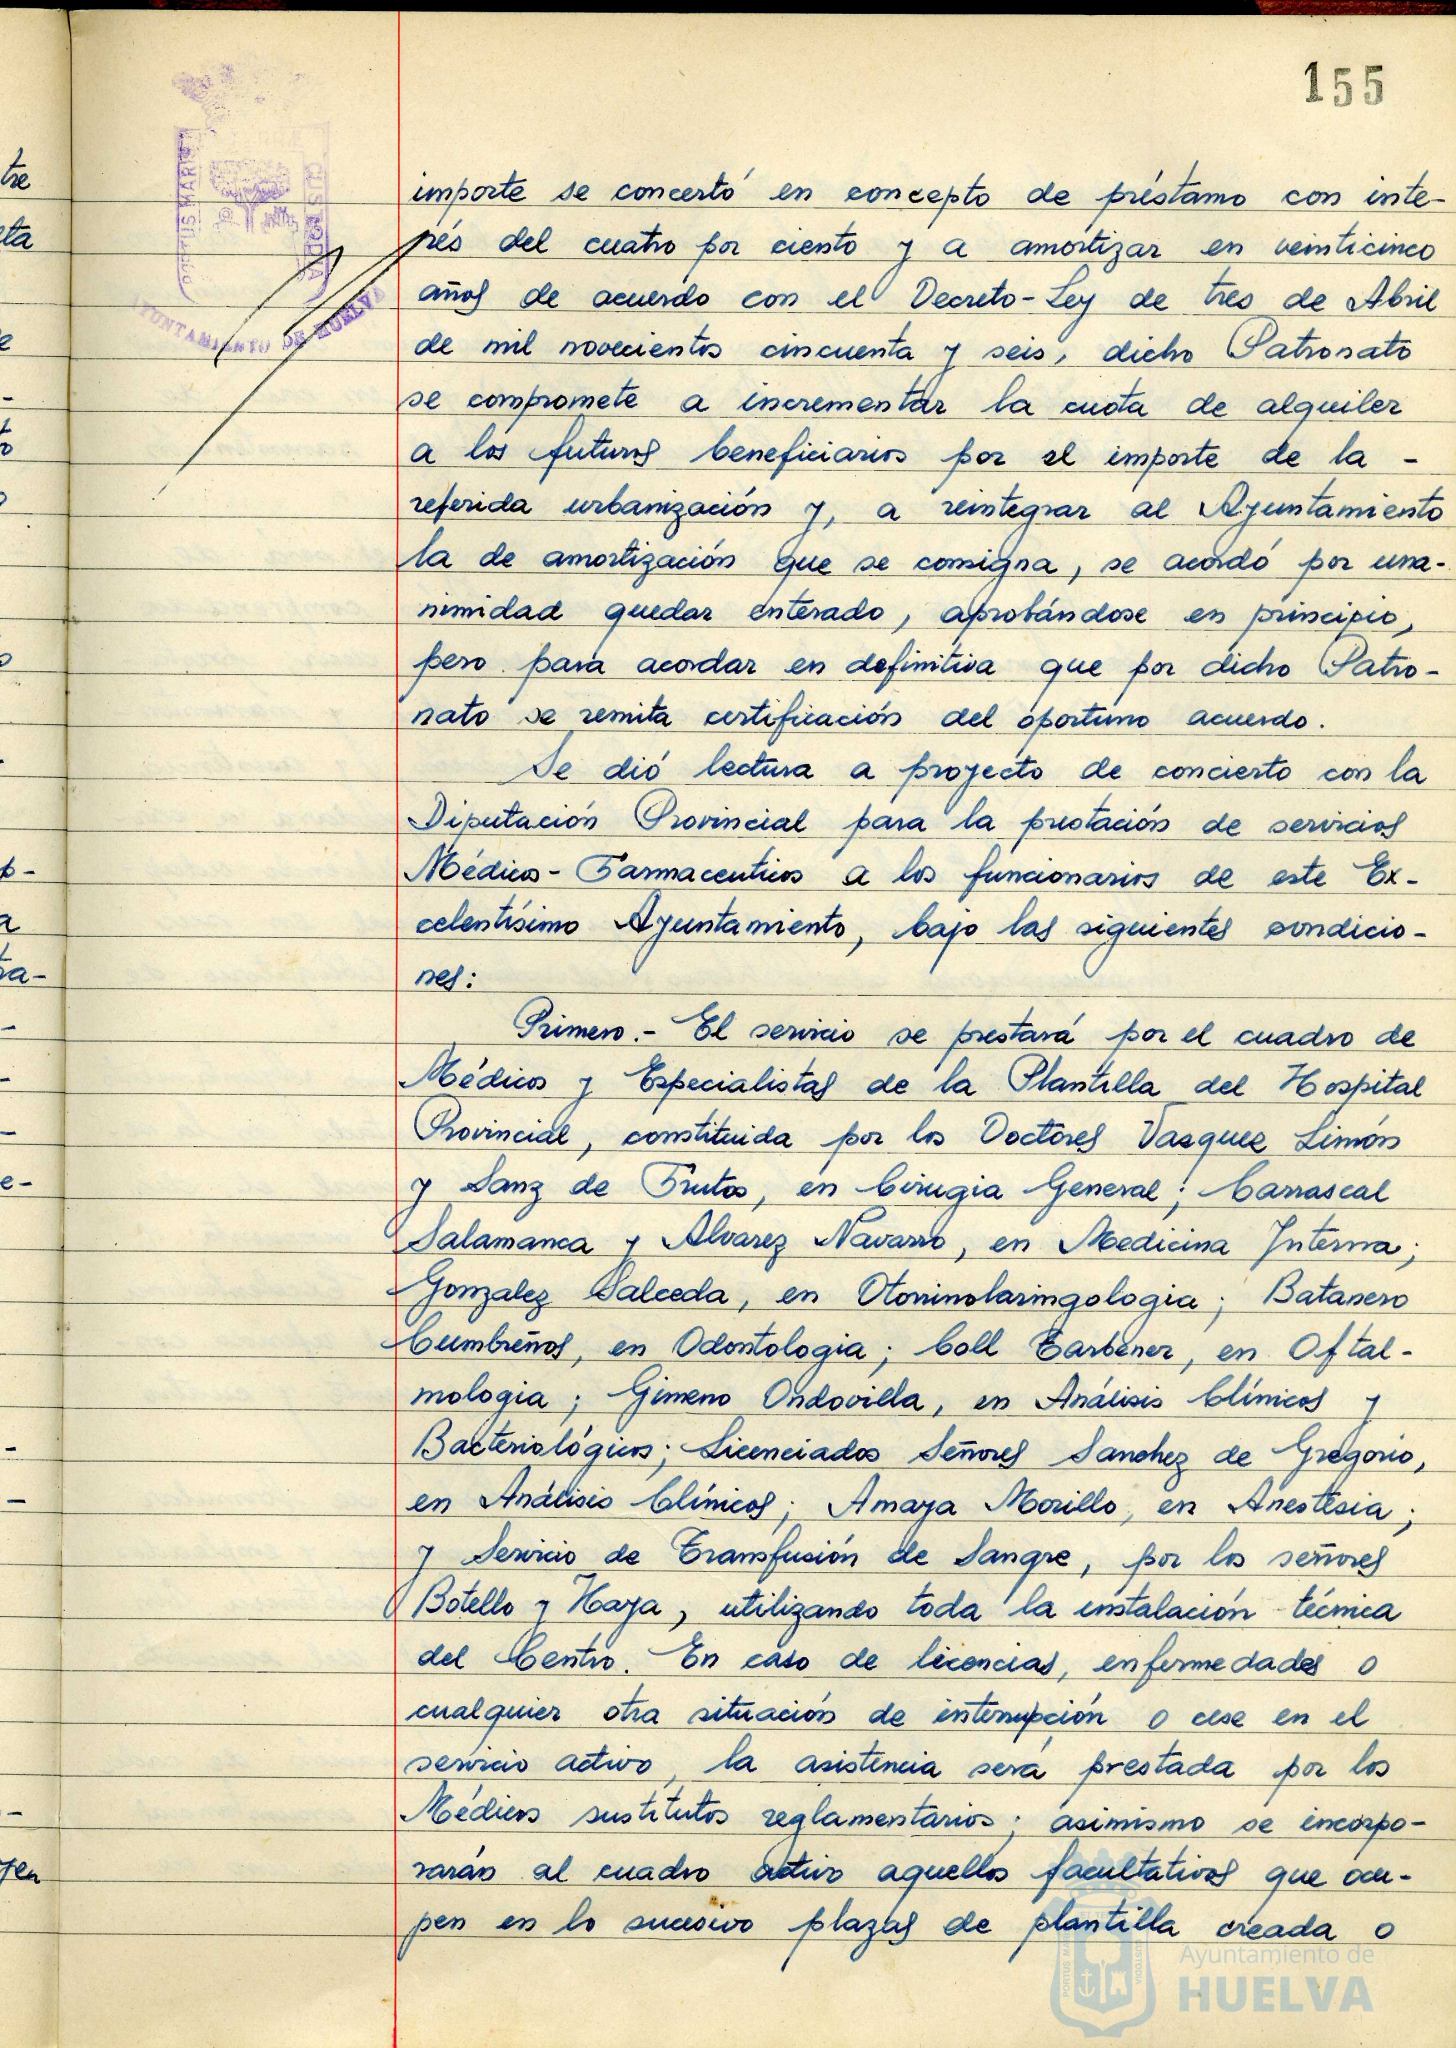 155
PORTUS MARIS
CUSTODIA
AYUNTAMIENTO DE HUELVA
importe se concertó en concepto de préstamo con inte-
rés del cuatro por ciento y a amortizar en veinticinco
años de acuerdo con el Decreto-Ley de tres de Abril
de mil novecientos cincuenta y seis, dicho Patronato
se compromete a incrementar la cuota de alquiler
a los futuros beneficiarios por el importe de la -
referida urbanización y, a reintegrar al Ayuntamiento
la de amortización que se consigna, se acordó por una-
nimidad quedar enterado, aprobándose en principio,
pero para acordar en definitiva que por dicho Patro-
nato se remita certificación del oportuno acuerdo.
Se dió lectura a proyecto de concierto con la
Diputación Provincial para la prestación de servicios
Médicos-Farmaceuticos a los funcionarios de este Ex-
celentísimo Ayuntamiento, bajo las siguientes condicio-
nes:
Primero.- El servicio se prestará por el cuadro de
Médicos y Especialistas de la Plantilla del Hospital
Provincial, constituida por los Doctores Vazquez Limón
y Sanz de Frutos, en Cirugia General; Carrascal
Salamanca y Alvarez Navarro, en Medicina Interna;
Gonzalez Salceda, en Otorrinolaringologia; Batanero
Cumbreños, en Odontologia; Coll Carbener, en Oftal-
mologia; Gimeno Ondovilla, en Análisis Clínicos y
Bacteriológicos; Licenciados Señores Sanchez de Gregorio,
en Análisis Clínicos; Amaya Morillo, en Anestesia;
y Servicio de Transfusión de Sangre, por los señores
Botello y Haya, utilizando toda la instalación técnica
del Centro. En caso de licencias, enfermedades o
cualquier otra situación de interrupción o cese en el
servicio activo, la asistencia será prestada por los
Médicos sustitutos reglamentarios; asimismo se incorpo-
rarán al cuadro activo aquellos facultativos que ocu-
pen en lo sucesivo plazas de plantilla creada o
Ayuntamiento de
HUELVA